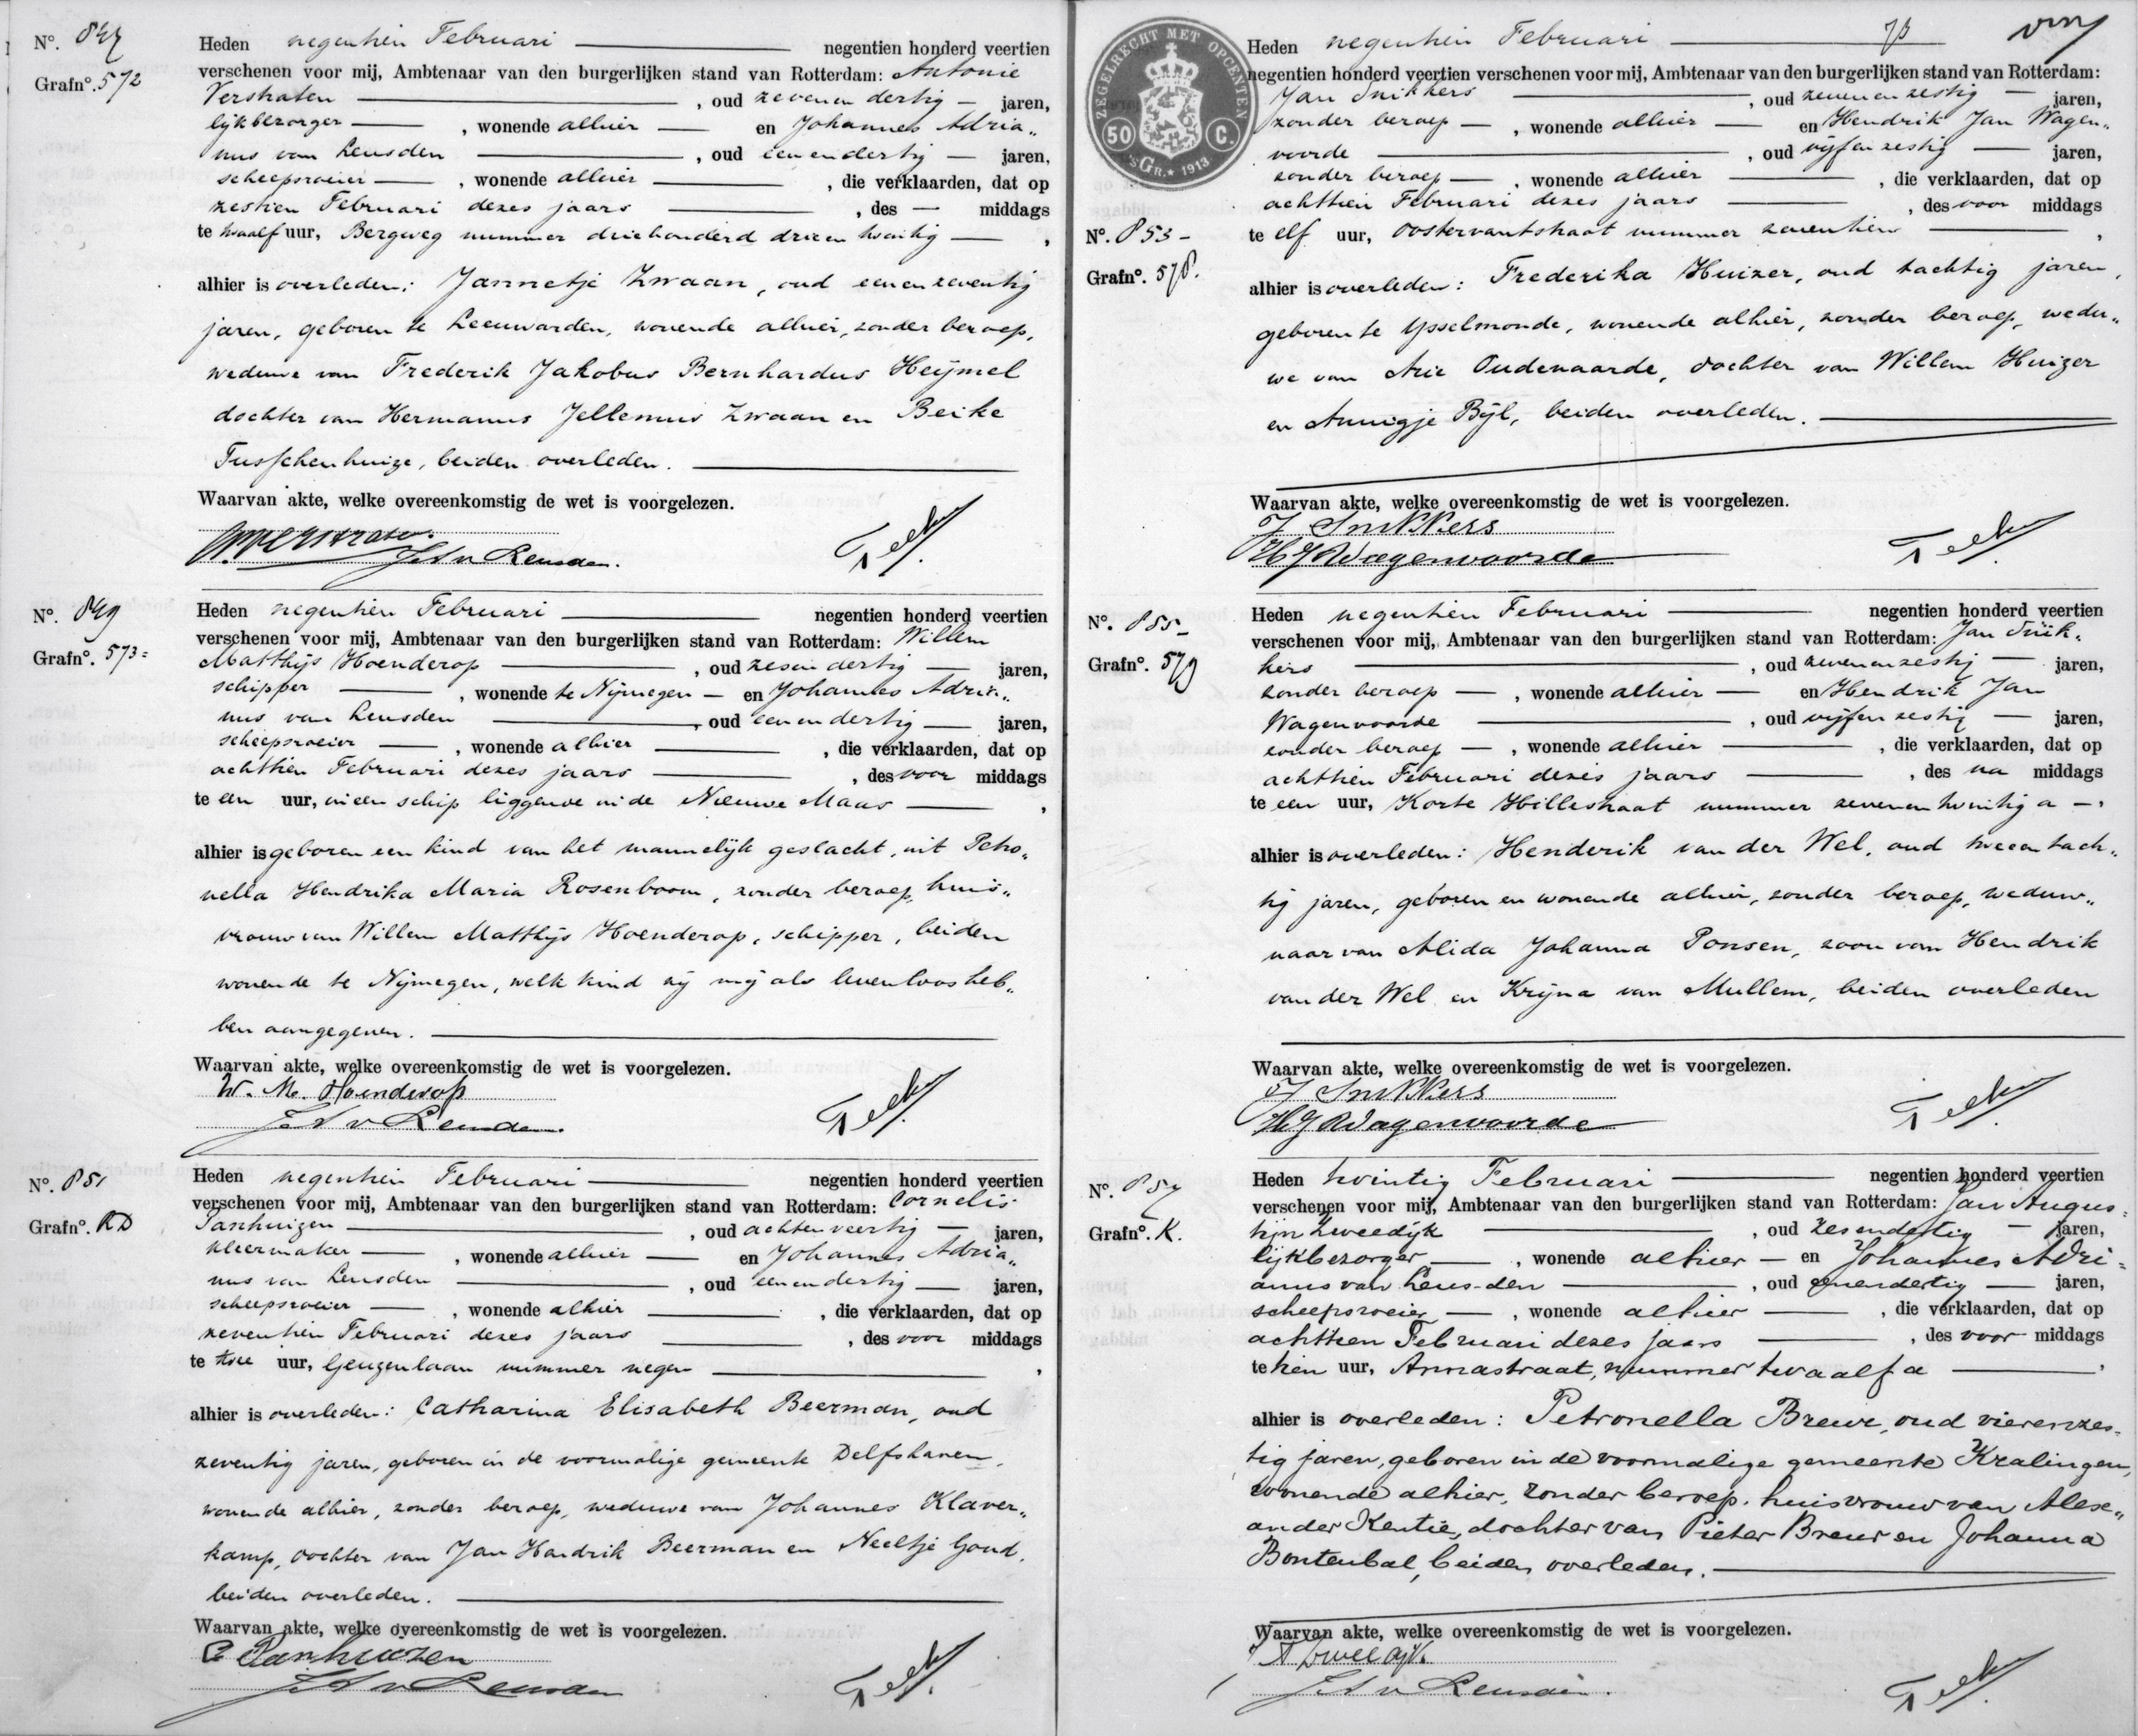 No. 847
Grafno. 572
Heden negentien Februari negentien honderd veertien
verschenen voor mij, Ambtenaar van den burgerlijken stand van Rotterdam: Antonie
Verstraten , oud zevenendertig jaren,
lijkbezorger , wonende alhier en Johannes Adria„
nus van Leusden , oud eenendertig jaren,
scheepsroeier , wonende alhier , die verklaarden, dat op
zestien Februari dezes jaars , des — middags
te twaalf uur, Bergweg nummer driehonderd drieentwintig ,
alhier is overleden: Jannetje Zwaan, oud eenenzeventig
jaren, geboren te Leeuwarden, wonende alhier, zonder beroep,
weduwe van Frederik Jakobus Bernhardus Heijmel
dochter van Hermanus Jellemus Zwaan en Beike
Tusschenhuize, beiden overleden.
Waarvan akte, welke overeenkomstig de wet is voorgelezen.
J A v Leusden.
No. 849
Grafno. 573=
Heden negentien Februari negentien honderd veertien
verschenen voor mij, Ambtenaar van den burgerlijken stand van Rotterdam: Willem
Matthijs Hoenderop , oud zesendertig jaren,
schipper , wonende te Nijmegen en Johannes Adria„
nus van Leusden , oud eenendertig jaren,
scheepsroeier , wonende alhier , die verklaarden, dat op
achttien Februari dezes jaars , des voor middags
te een uur, in een schip liggende in de Nieuwe Maas ,
alhier is geboren een kind van het mannelijk geslacht, uit Petro„
nella Hendrika Maria Rosenboom, zonder beroep, huis„
vrouw van Willem Matthijs Hoenderop, schipper, beiden
wonende te Nijmegen, welk kind zij mij als levenloos heb„
ben aangegeven.
Waarvan akte, welke overeenkomstig de wet is voorgelezen.
W. M. Hoenderop
J A v Leusden.
No. 851
Grafno. RD
Heden negentien Februari negentien honderd veertien
verschenen voor mij, Ambtenaar van den burgerlijken stand van Rotterdam: Cornelis
Panhuizen , oud achtenveertig jaren,
kleermaker , wonende alhier en Johannes Adria„
nus van Leusden , oud eenendertig jaren,
scheepsroeier , wonende alhier , die verklaarden, dat op
zeventien Februari dezes jaars , des voor middags
te twee uur, Geuzenlaan nummer negen ,
alhier is overleden: Catharina Elisabeth Beerman, oud
zeventig jaren, geboren in de voormalige gemeente Delfshaven,
wonende alhier, zonder beroep, weduwe van Johannes Klaver„
kamp, dochter van Jan Hendrik Beerman en Neeltje Goud,
beiden overleden.
Waarvan akte, welke overeenkomstig de wet is voorgelezen.
C Panhuizen
J A v Leusden
ZEGELRECHT MET OPCENTEN
50 C.
'sGR. 1913
No. 853
Grafno. 578.
Heden negentien Februari
negentien honderd veertien verschenen voor mij, Ambtenaar van den burgerlijken stand van Rotterdam:
Jan Snikkers , oud zevenenzestig jaren,
zonder beroep , wonende alhier en Hendrik Jan Wagen„
voorde , oud vijfenzestig jaren,
zonder beroep , wonende alhier , die verklaarden, dat op
achttien Februari dezes jaars , des voor middags
te elf uur, Oostervantstraat nummer zeventien ,
alhier is overleden: Frederika Huizer, oud tachtig jaren,
geboren te IJsselmonde, wonende alhier, zonder beroep, wedu„
we van Arie Oudenaarde, dochter van Willem Huizer
en Annigje Bijl, beiden overleden.
Waarvan akte, welke overeenkomstig de wet is voorgelezen.
J Snikkers
H J Wagenvoorde
No. 855
Grafno. 579
Heden negentien Februari negentien honderd veertien
verschenen voor mij, Ambtenaar van den burgerlijken stand van Rotterdam: Jan Snik„
kers , oud zevenenzestig jaren,
zonder beroep , wonende alhier en Hendrik Jan
Wagenvoorde , oud vijfenzestig jaren,
zonder beroep , wonende alhier , die verklaarden, dat op
achttien Februari dezes jaars , des na middags
te een uur, Korte Hillestraat nummer zevenentwintig a ,
alhier is overleden: Henderik van der Wel, oud tweeentach„
tig jaren, geboren en wonende alhier, zonder beroep, weduw„
naar van Alida Johanna Ponsen, zoon van Hendrik
van der Wel en Krijna van Mullem, beiden overleden
Waarvan akte, welke overeenkomstig de wet is voorgelezen.
J Snikkers
H J Wagenvoorde
No. 857
Grafno. K.
Heden twintig Februari negentien honderd veertien
verschenen voor mij, Ambtenaar van den burgerlijken stand van Rotterdam: Jan Augus=
tijn Zweedijk , oud zesendertig jaren,
lijkbezorger , wonende alhier en Johannes Adri=
anus van Leusden , oud eenendertig jaren,
scheepsroeier , wonende alhier , die verklaarden, dat op
achttien Februari dezes jaars , des voor middags
te tien uur, Annastraat, nummer twaalf a ,
alhier is overleden: Petronella Breur, oud vierenzes=
tig jaren, geboren in de voormalige gemeente Kralingen,
wonende alhier, zonder beroep, huisvrouw van Alex„
ander Kentie, dochter van Pieter Breur en Johanna
Bontenbal, beiden overleden.
Waarvan akte, welke overeenkomstig de wet is voorgelezen.
J A Zweedijk
J A v Leusden.